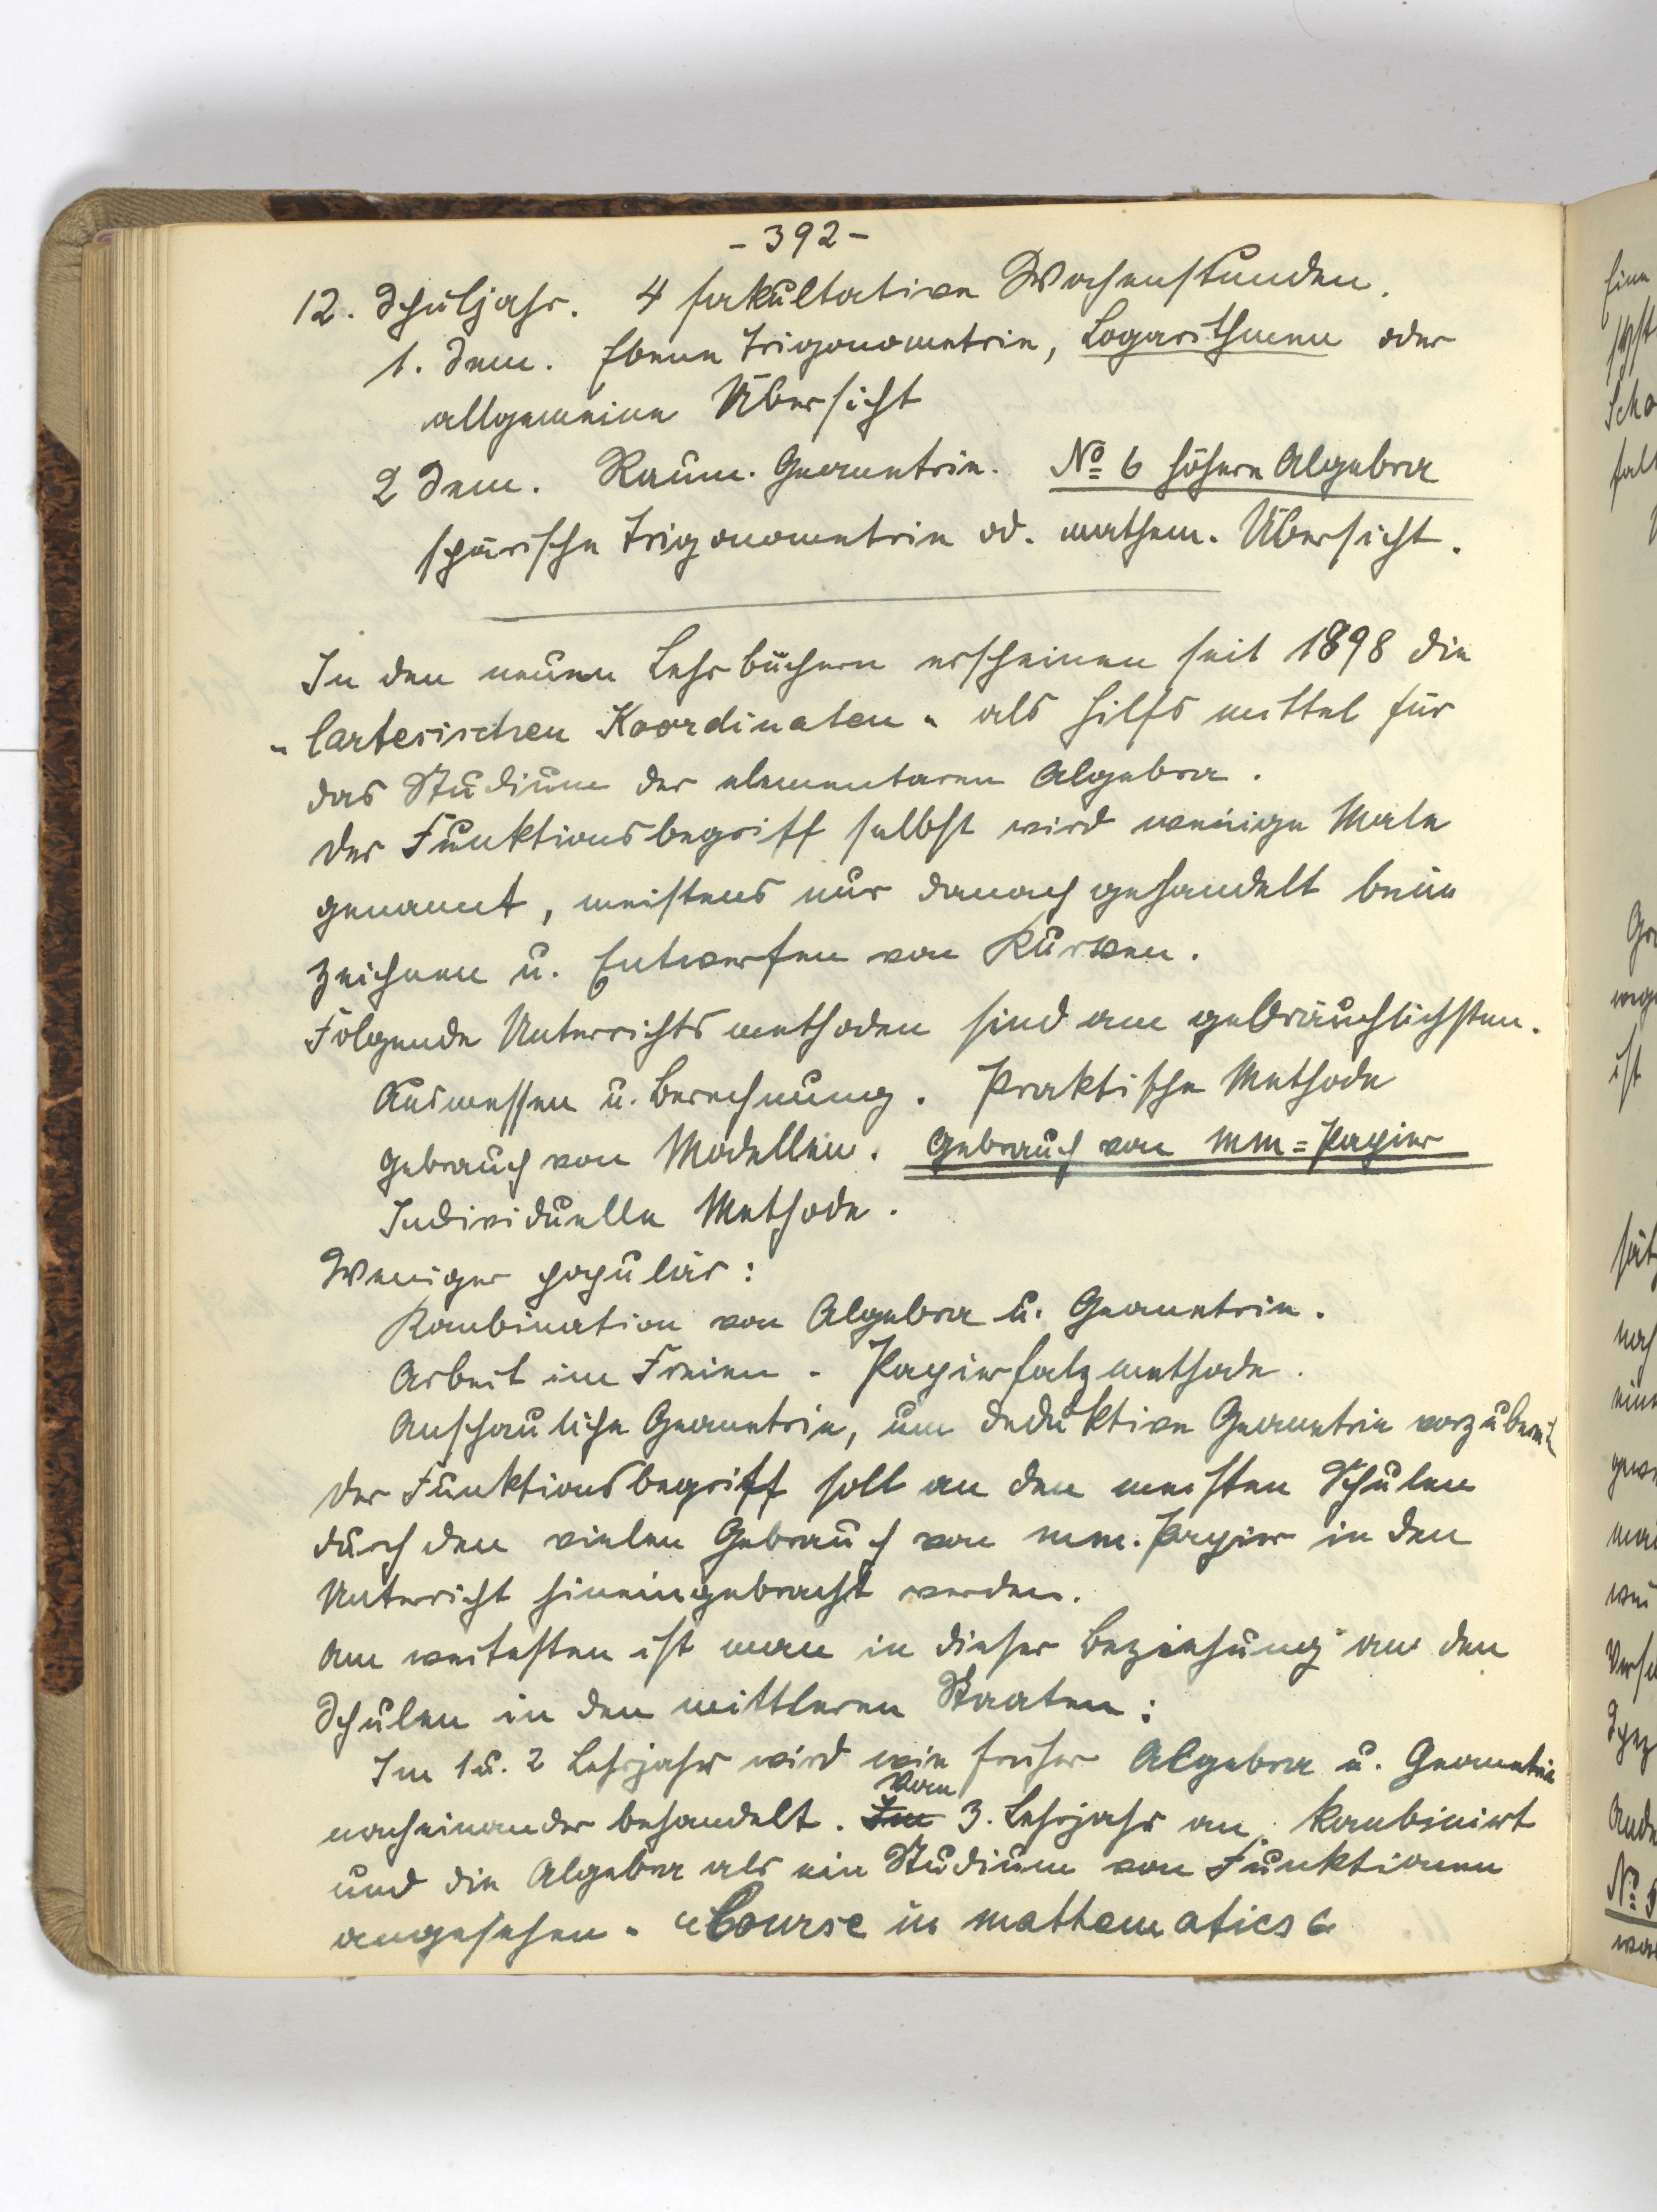 - 392 -
12. Schuljahr. 4 fakultative Wochenstunden.
1. Sem. Ebene Trigonometrie, Logarithmen oder
allgemeine Übersicht
2 Sem. Raum. Geometrie. No 6 höhere Algebra
sphärische Trigonometrie od. mathem. Übersicht.
In den neuen Lehrbüchern erscheinen seit 1898 die
"Cartesischen Koordinaten" als Hilfsmittel für
das Studium der elementaren Algebra.
Der Funktionsbegriff selbst wird wenige Male
genannt, meistens nur danach gehandelt beim
Zeichnen u. Entwerfen von Kurven.
Folgende Unterrichtsmethoden sind am gebräuchlichsten.
Ausmessen u. Berechnung. Praktische Methode
Gebrauch von Modellen. Gebrauch von mm=Papier
Individuelle Methode.
Weniger populär:
Kombination von Algebra u. Geometrie.
Arbeit im Freien - Papierfalzmethode.
Anschauliche Geometrie, um deduktive Geometrie vorzubereit
Der Funktionsbegriff soll an den meisten Schulen
durch den vielen Gebrauch von mm. Papier in den
Unterricht hineingebracht werden.
Am weitesten ist man in dieser Beziehung an den
Schulen in den mittleren Staaten:
Im 1 u. 2 Lehrjahr wird wie früher Algebra u. Geometrie
vom
nacheinander behandelt. Im 3. Lehrjahr an, kombiniert
und die Algebra als ein Studium von Funktionen
angesehen. "Course in mathematics"
Eine
ist